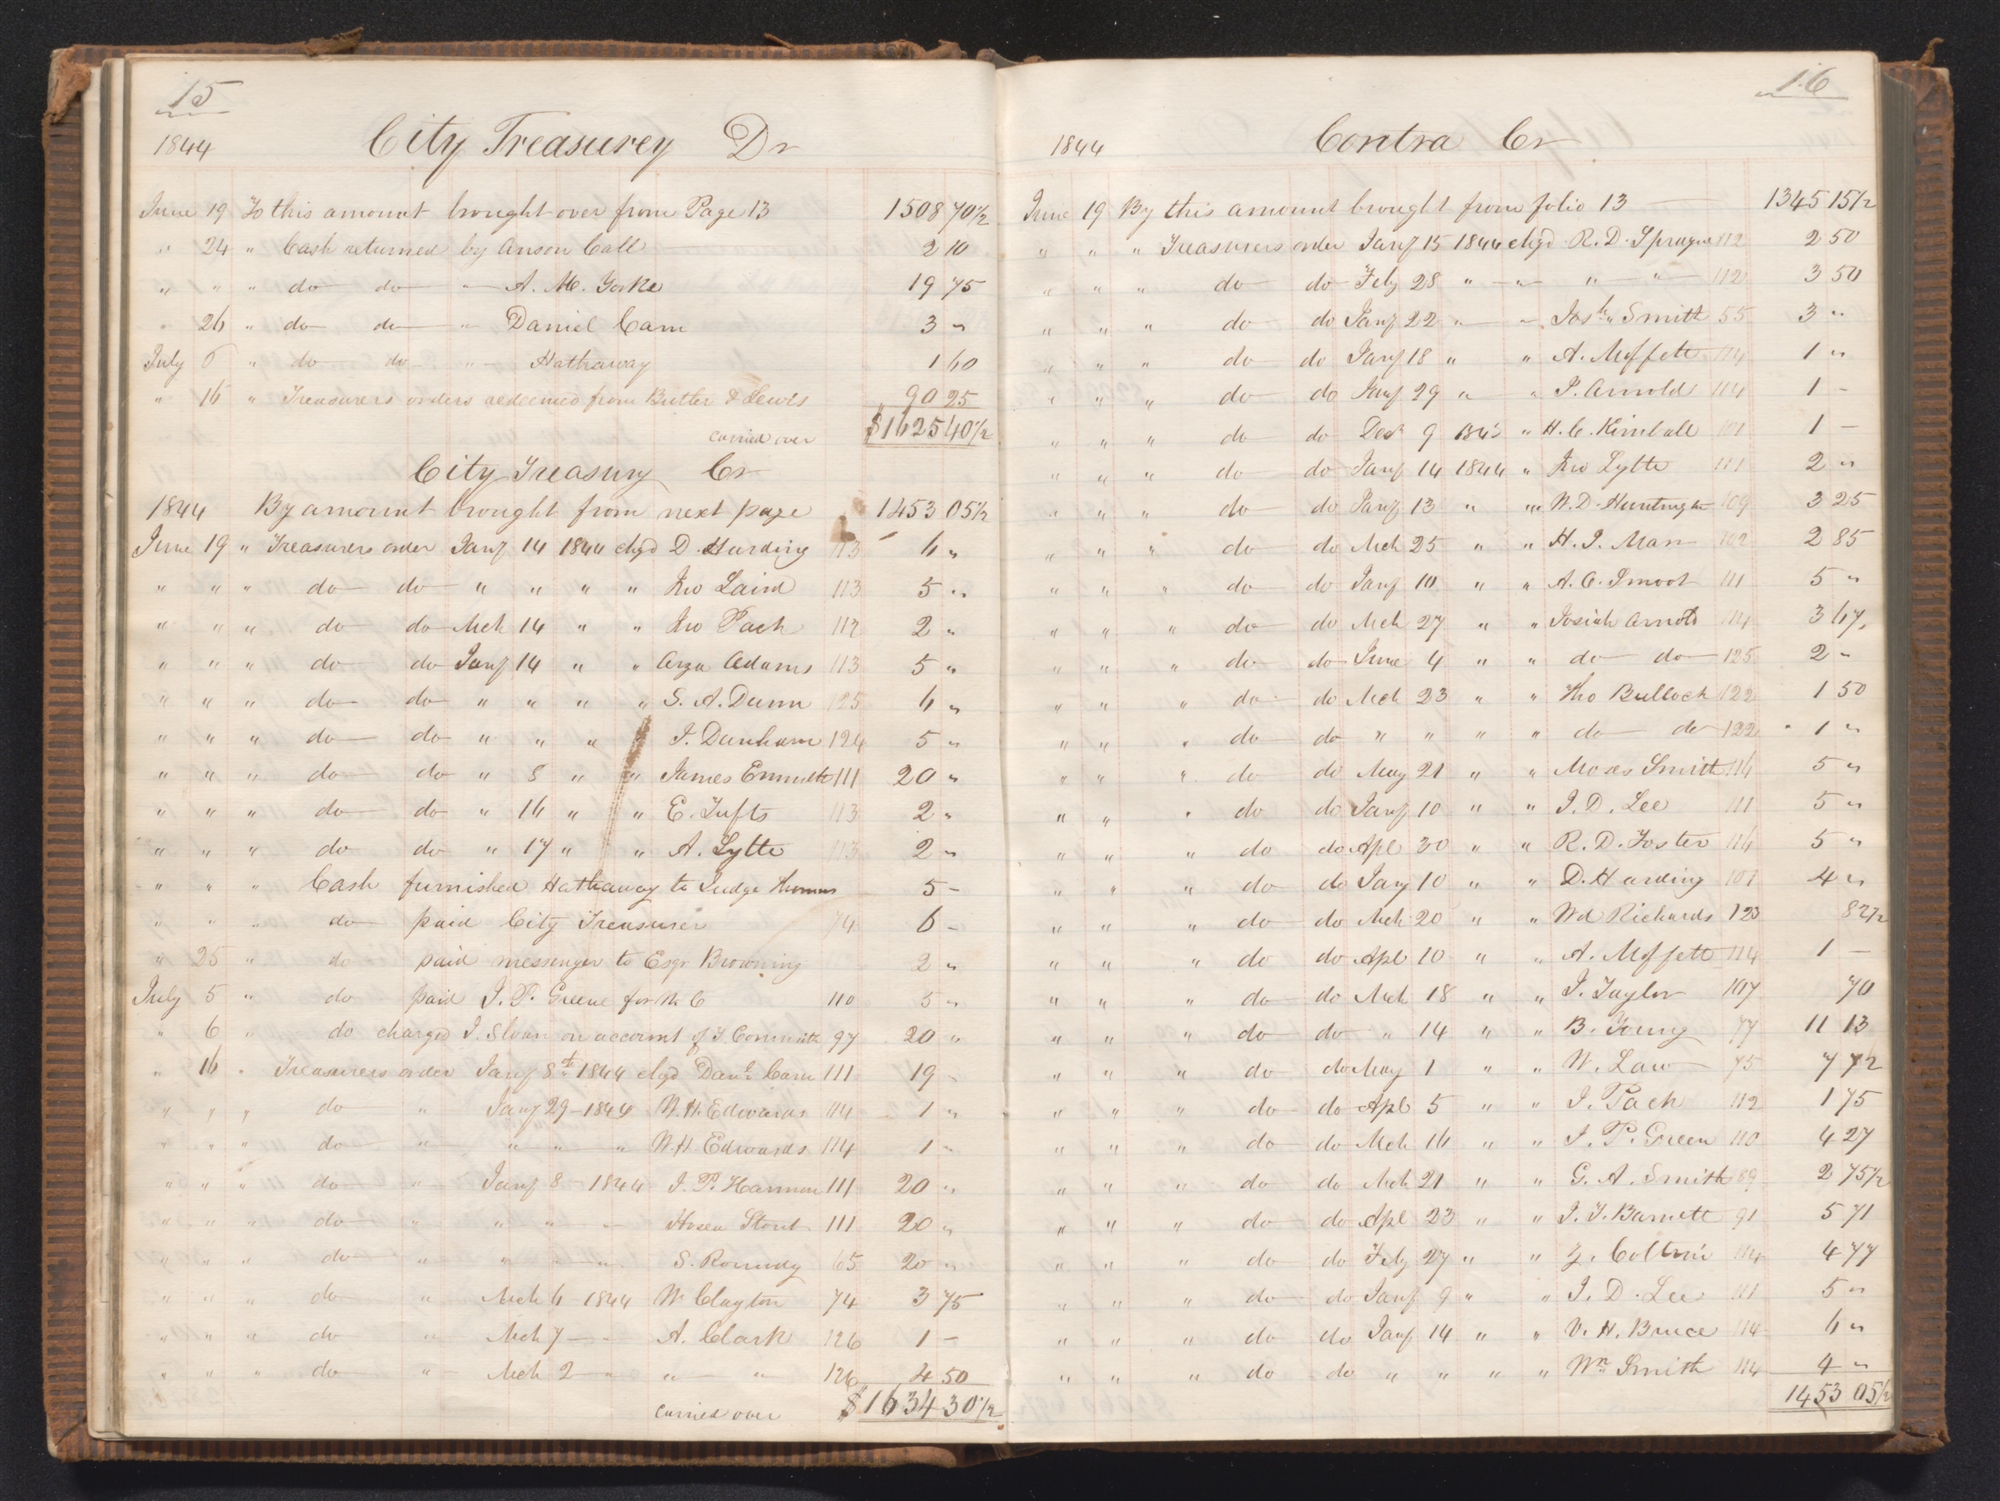 15
1844 City Treasurey Dr
June 19 To this amount brought over from Page 13 1508 70 1/2
" 24 " Cash returned by Anson Call 2 10
" " " do do " A. M. Yorke 19 75
" 26 " do do " Daniel Carn 3 "
July 6 " do do " Hathaway 1 60
" 16 " Treasurers orders redeemed from Butler & Lewis 90 25
carried over $1625 40 1/2
City Treasury Cr
1844 By amount brought from next page 1453 05 1/2
June 19 " Treasurers order Jany 14 1844 chgd D. Harding 113 6 "
" " " do do " " " " Jno Laird 113 5 "
" " " do do Mch 14 " " Jno Pack 112 2 "
" " " do do Jany 14 " " Arza Adams 113 5 "
" " " do do " " " " S. A. Dunn 125 6 "
" " " do do " " " J. Dunham 124 5 "
" " " do do " 8 " " James Emmett 111 20 "
" " " do do " 16 " " E. Tufts 113 2 "
" " " do do " 17 " " A. Lytle 113 2 "
" " " Cash furnished Hathaway to Judge Thomas 5 -
" " " do paid City Treasurer 74 6 -
" 25 " do paid messenger to Esqr Browning 2 "
July 5 " do paid J. P. Greene for 110 5 "
" 6 " do charged J. Sloan on account of T Committe 97 20 "
" 16 " Treasurers order Jany 8th 1844 chgd Danl Carn 111 19 -
" " " do " Jany 29 - 1844 W. H. Edwards 114 1 "
" " " do " " " " W. H. Edwards 114 1 -
" " " do " Jany 8 - 1844 J. P. Harmon 111 20 "
" " " do " " " - Hosea Stout 111 20 "
" " " do " " " " S. Roundy 65 20 "
" " " do " Mch 6 - 1844 W. Clayton 74 3 75
" " " do " Mch 7 - A. Clark 126 1 -
" " " do " Mch 2 - " " 126 4 50
carried over $1634 30 1/2
16
1844 Contra Cr
June 19 By this amount brought from folio 13 1345 15 1/2
" " " Treasurers order Jany 15 1844 chgd R. D. Sprague 112 2 50
" " " do do Feby 28 " " " " 112 3 50
" " " do do Jany 22 " " Josh. Smith 55 3 "
" " " do do Jany 18 " " A. Moffett 114 1 "
" " " do do Jany 29 " " J. Arnold 114 1 -
" " " do do Decr 9 1843 " H. C. Kimball 101 1 -
" " " do do Jany 14 1844 " Jno Lytle 111 2 "
" " " do do Jany 13 " " W. D. Huntington 109 3 25
" " " do do Mch 25 " " H. J. Marr 102 2 85
" " " do do Jany 10 " " A. O. Smoot 111 5 "
" " " do do Mch 27 " " Josiah Arnold 114 3 67
" " " do do June 4 " " do do 125 2 "
" " " do do Mch 23 " " Tho Bullock 122 1 50
" " " do do " " " " do do 122 1 "
" " " do do May 21 " " Moses Smith 116 5 "
" " " do do Jany 10 " " J. D. Lee 111 5 "
" " " do do Apl 30 " " R. D. Foster 116 5 "
" " " do do Jany 10 " " D. Harding 101 4 "
" " " do do Mch 20 " " Wd Richards 123 82 1/2
" " " do do Apl 10 " " A. Moffett 114 1 -
" " " do do Mch 18 " " J. Taylor 107 70
" " " do do " 14 " " B. Young 77 11 13
" " " do do May 1 " " W. Law 75 7 72
" " " do do Apl 5 " " J. Pack 112 1 75
" " " do do Mch 16 " " J. P. Green 110 4 27
" " " do do Mch 21 " " G. A. Smith 89 2 75 1/2
" " " do do Apl 23 " " J. T. Barnett 91 5 71
" " " do do Feby 27 " " Z. Coltrin 114 4 77
" " " do do Jany 9 " " J. D. Lee 111 5 "
" " " do do Jany 14 " " V. H. Bruce 114 6 "
" " " do do " " " " Wm Smith 114 4 "
1453 05 1/2